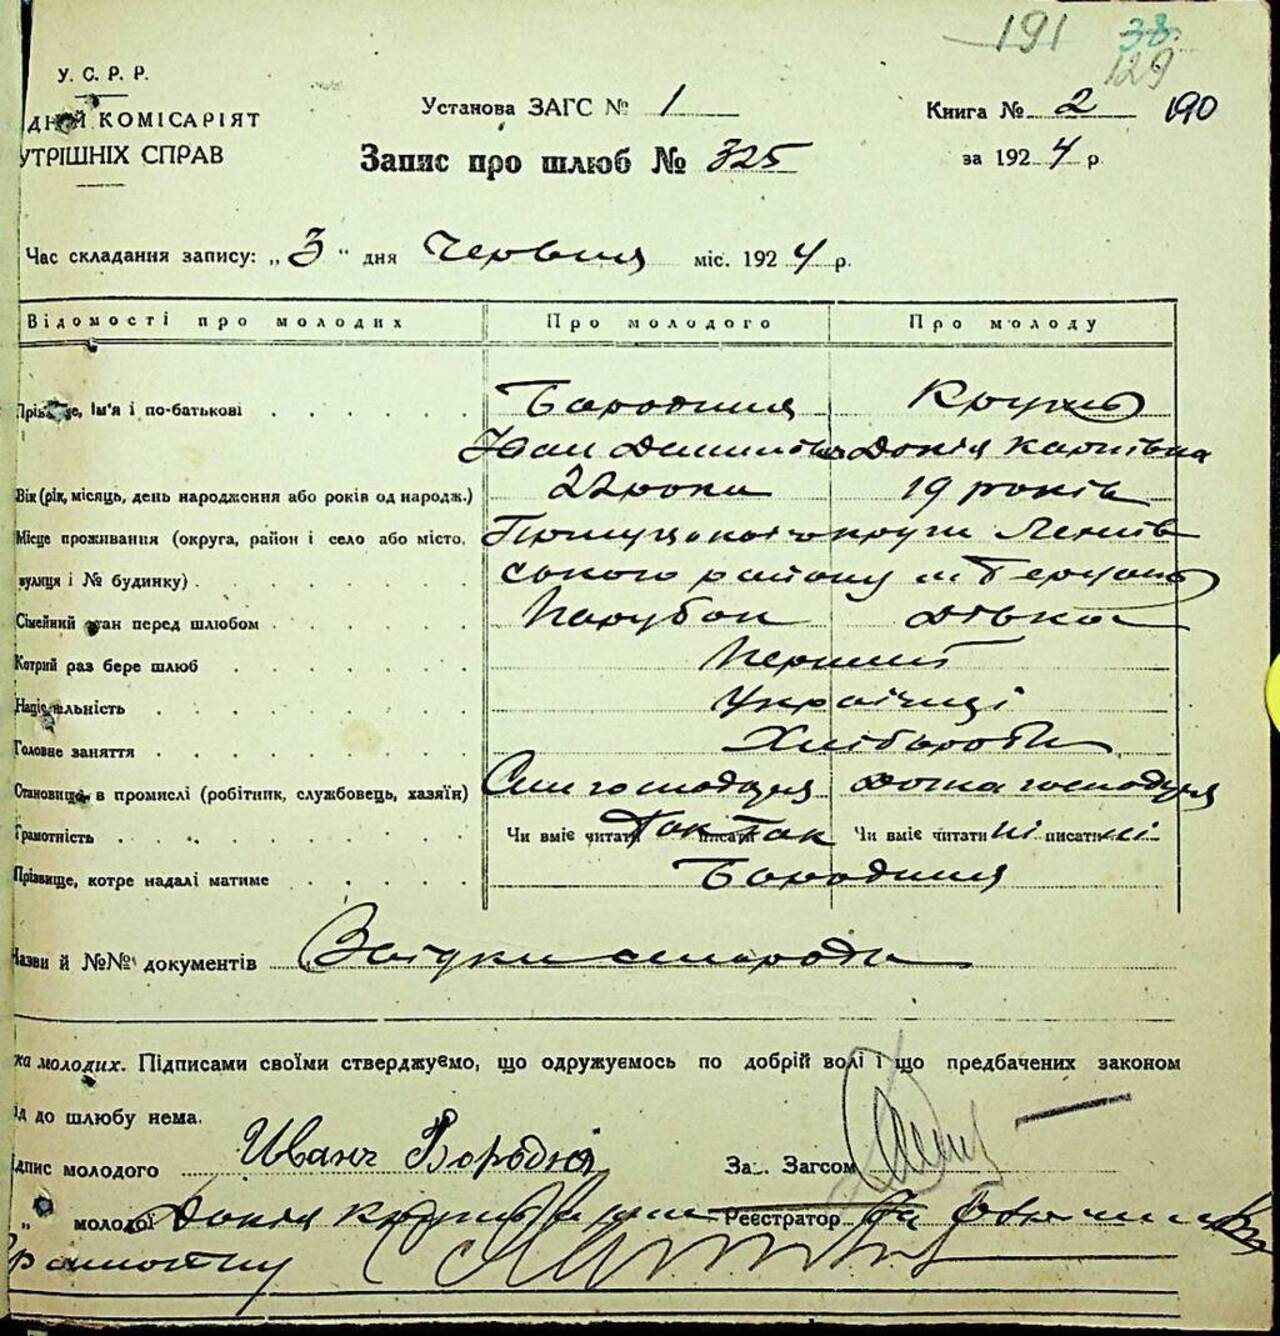 191 38.
129
У. С. Р. Р.
КОМІСАРІЯТ
УТРІШНІХ СПРАВ
Установа ЗАГС № 1
Книга № 2 190
Запис про шлюб № 325
за 1924 р.
Час складання запису: „3" дня Червня міс. 1924 р.
Відомості про молодих Про молодого Про молоду
ім'я і по-батькові Бородиня Крупь
Іван Данилов Докія Карпівна
Вік (рік, місяць, день народження або років од народж.) 22 роки 19 років
Місце проживання (округа, район і село або місто, округи
вулиця і № будинку) ського району
Сімейний стан перед шлюбом Парубок Дівка
Котрий раз бере шлюб Перший
Українці
Головне заняття Хлібороби
Становище в промислі (робітник, службовець, хазяїн) Син господаря Дочка господаря
Грамотність Чи вміє читати Так писати Так Чи вміє читати ні писати ні
Прізвище, котре надалі матиме Бородиня
Назви й №№ документів
молодих. Підписами своїми стверджуємо, що одружуємось по добрій волі і що предбачених законом
до шлюбу нема.
молодого Иванъ Зав. Загсом
„ молодої Докія Реєстратор